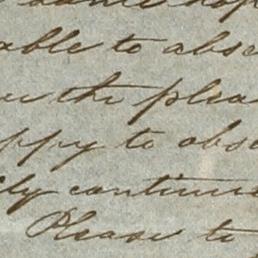 able to abse
the plea
ppy to obse
ily continue
Please to